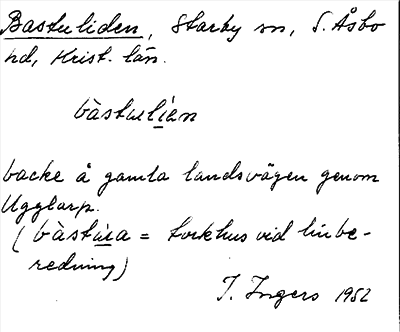 Bastuliden, Starby sn, S. Åsbo
hd, Krist. län.
bàstulían
backe å gamla landsvägen genom
Ugglarp.
(bàstúa = torkhus vid linbe-
redning)
I. Ingers 1952